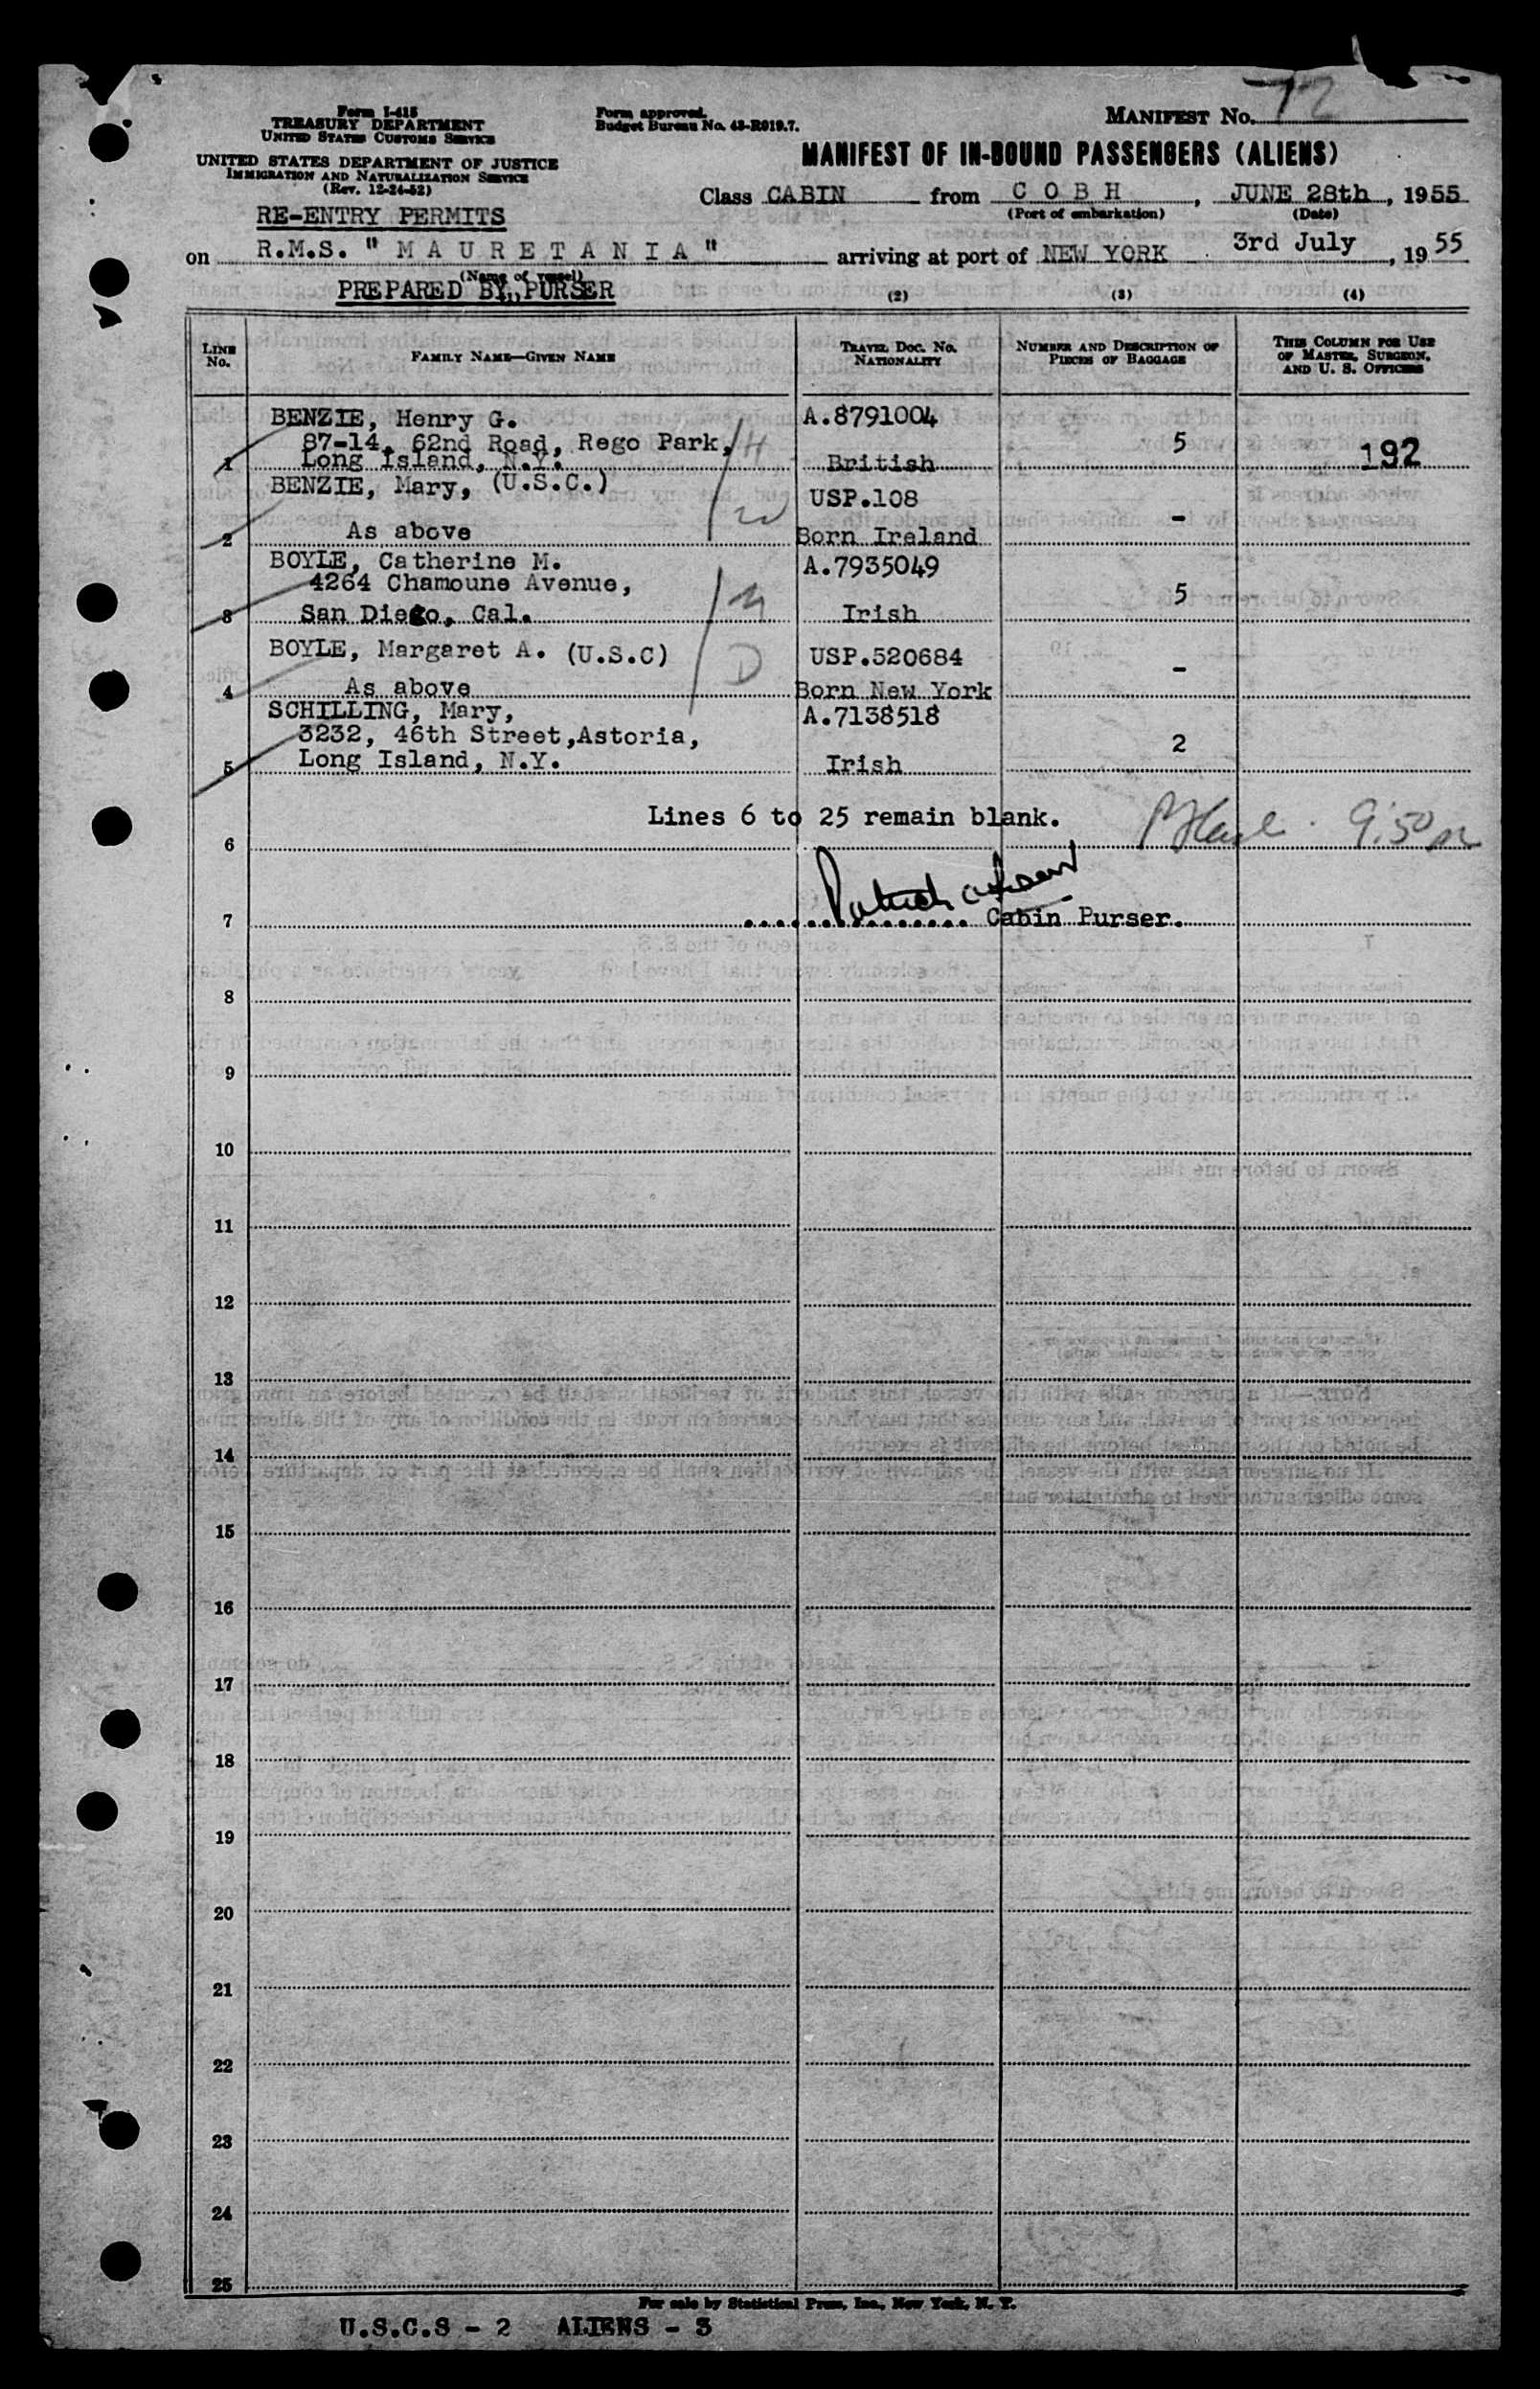 Form I-415
TREASURY DEPARTMENT
UNITED STATES CUSTOMS SERVICE
UNITED STATES DEPARTMENT OF JUSTICE
IMMIGRATION AND NATURALIZATION SERVICE
(Rev. 12-24-52)
Form approved.
Budget Bureau No. 43-R019.7.
MANIFEST No. 72
MANIFEST OF IN-BOUND PASSENGERS (ALIENS)
Class CABIN from C O B H, JUNE 28th, 1955
(Port of embarkation) (Date)
RE-ENTRY PERMITS
on R.M.S. "M A U R E T A N I A" arriving at port of NEW YORK 3rd July, 1955
(Name of vessel)
PREPARED BY PURSER
(2) (3) (4)
LINE No.
FAMILY NAME—GIVEN NAME
TRAVEL DOC. NO. NATIONALITY
NUMBER AND DESCRIPTION OF PIECES OF BAGGAGE
THIS COLUMN FOR USE OF MASTER, SURGEON, AND U. S. OFFICERS
BENZIE, Henry G. A.8791004
87-14, 62nd Road, Rego Park, H 5
1 Long Island, N.Y. British 192
BENZIE, Mary, (U.S.C.) USP.108
W -
2 As above Born Ireland
BOYLE, Catherine M. A.7935049
4264 Chamoune Avenue, 5
3 San Diego, Cal. M Irish
BOYLE, Margaret A. (U.S.C) USP.520684
D -
4 As above Born New York
SCHILLING, Mary, A.7138518
3232, 46th Street, Astoria, 2
5 Long Island, N.Y. Irish
Lines 6 to 25 remain blank. 9:50
6
7 Cabin Purser.
8
9
10
11
12
13
14
15
16
17
18
19
20
21
22
23
24
25
For sale by Statistical Press, Inc., New York, N. Y.
U.S.C.S - 2 ALIENS - 3